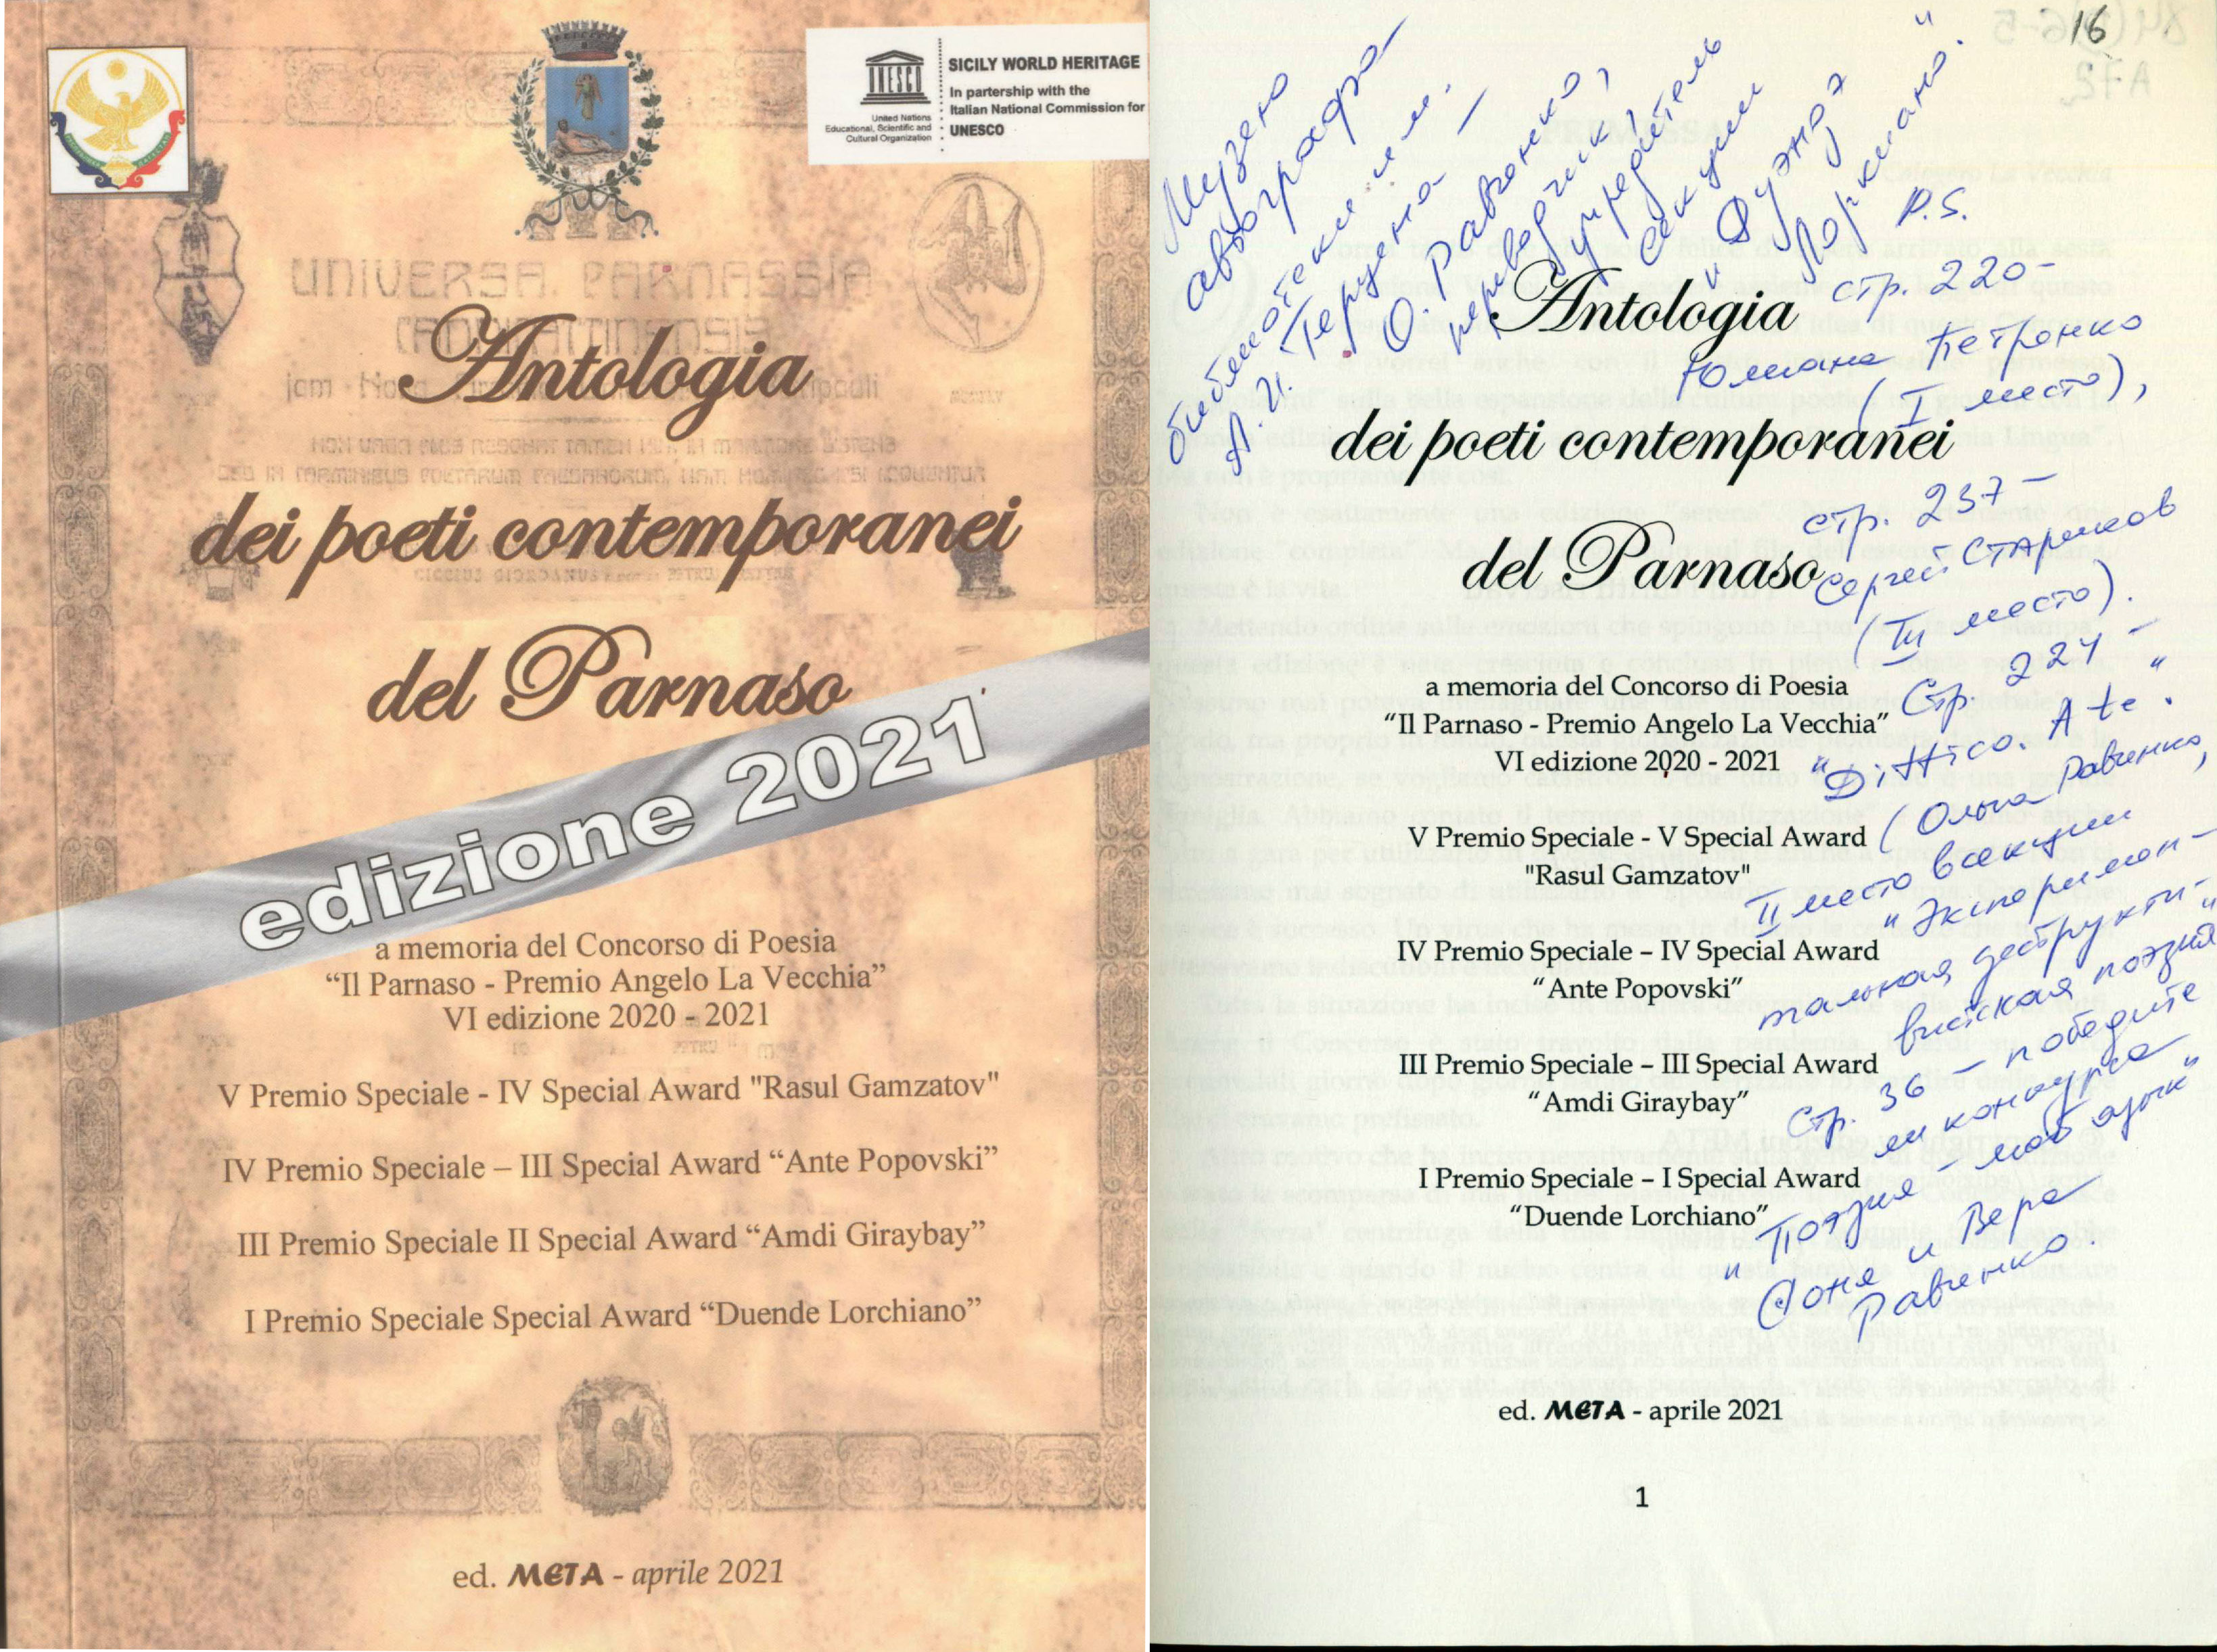 UNESCO
United Nations
Educational, Scientific and
Cultural Organization
SICILY WORLD HERITAGE
In partership with the
Italian National Commission for
UNESCO
UNIVERSA PARNASSIA
Antologia
dei poeti contemporanei
del Parnaso
edizione 2021
a memoria del Concorso di Poesia
“Il Parnaso - Premio Angelo La Vecchia”
VI edizione 2020 - 2021
V Premio Speciale - IV Special Award "Rasul Gamzatov"
IV Premio Speciale – III Special Award “Ante Popovski”
III Premio Speciale II Special Award “Amdi Giraybay”
I Premio Speciale Special Award “Duende Lorchiano”
ed. META - aprile 2021
16
Музею
автографа
библиотеки им.
А. И. Герцена —
О. Равченко,
переводчик,
учредитель
секции
"Дуэнде
Лоркиано."
P.S.
стр. 220 –
Юлиана Петренко
(I место),
стр. 237 –
Сергей Стариков
(III место).
Стр. 224 –
"Dittico. A te."
(Ольга Равченко,
II место в секции
"Эксперимен-
тальная деструкти-
вистская поэзия"
Стр. 36 – победите
ли конкурса
"Поэзия – мой язык"
Соня и Вера
Равченко.
Antologia
dei poeti contemporanei
del Parnaso
a memoria del Concorso di Poesia
“Il Parnaso - Premio Angelo La Vecchia”
VI edizione 2020 - 2021
V Premio Speciale - V Special Award
"Rasul Gamzatov"
IV Premio Speciale – IV Special Award
“Ante Popovski”
III Premio Speciale – III Special Award
“Amdi Giraybay”
I Premio Speciale – I Special Award
“Duende Lorchiano”
ed. META - aprile 2021
1